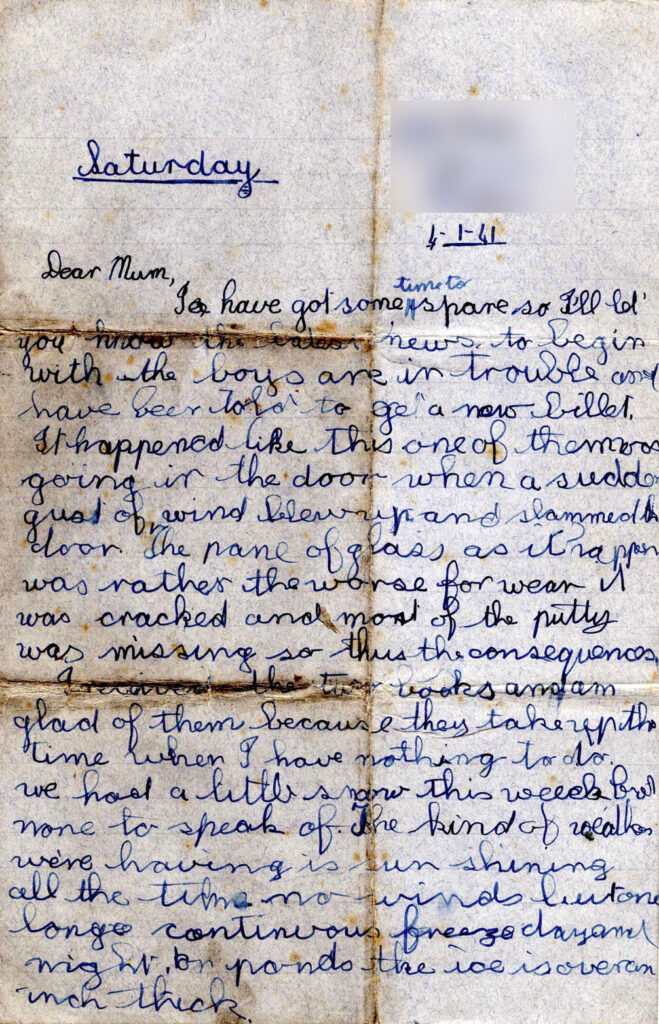 Saturday
4-1-41
Dear Mum,
I have got some time to spare, so I'll let
you know the latest news, to begin
with the boys are in trouble and
have been told to get a new billet.
It happened like this one of them was
going in the door when a sudden
gust of wind blew up and slammed the
door. The pane of glass, as it happen
was rather the worse for wear it
was cracked and most of the putty
was missing so thus the consequences.
I the two books and am
glad of them because they take up the
time when I have nothing to do.
we had a little snow this week but
none to speak of. The kind of weather
we're having is sun shining
all the time no winds but one
long continuous freeze day and
night, on ponds the ice is over an
inch thick.